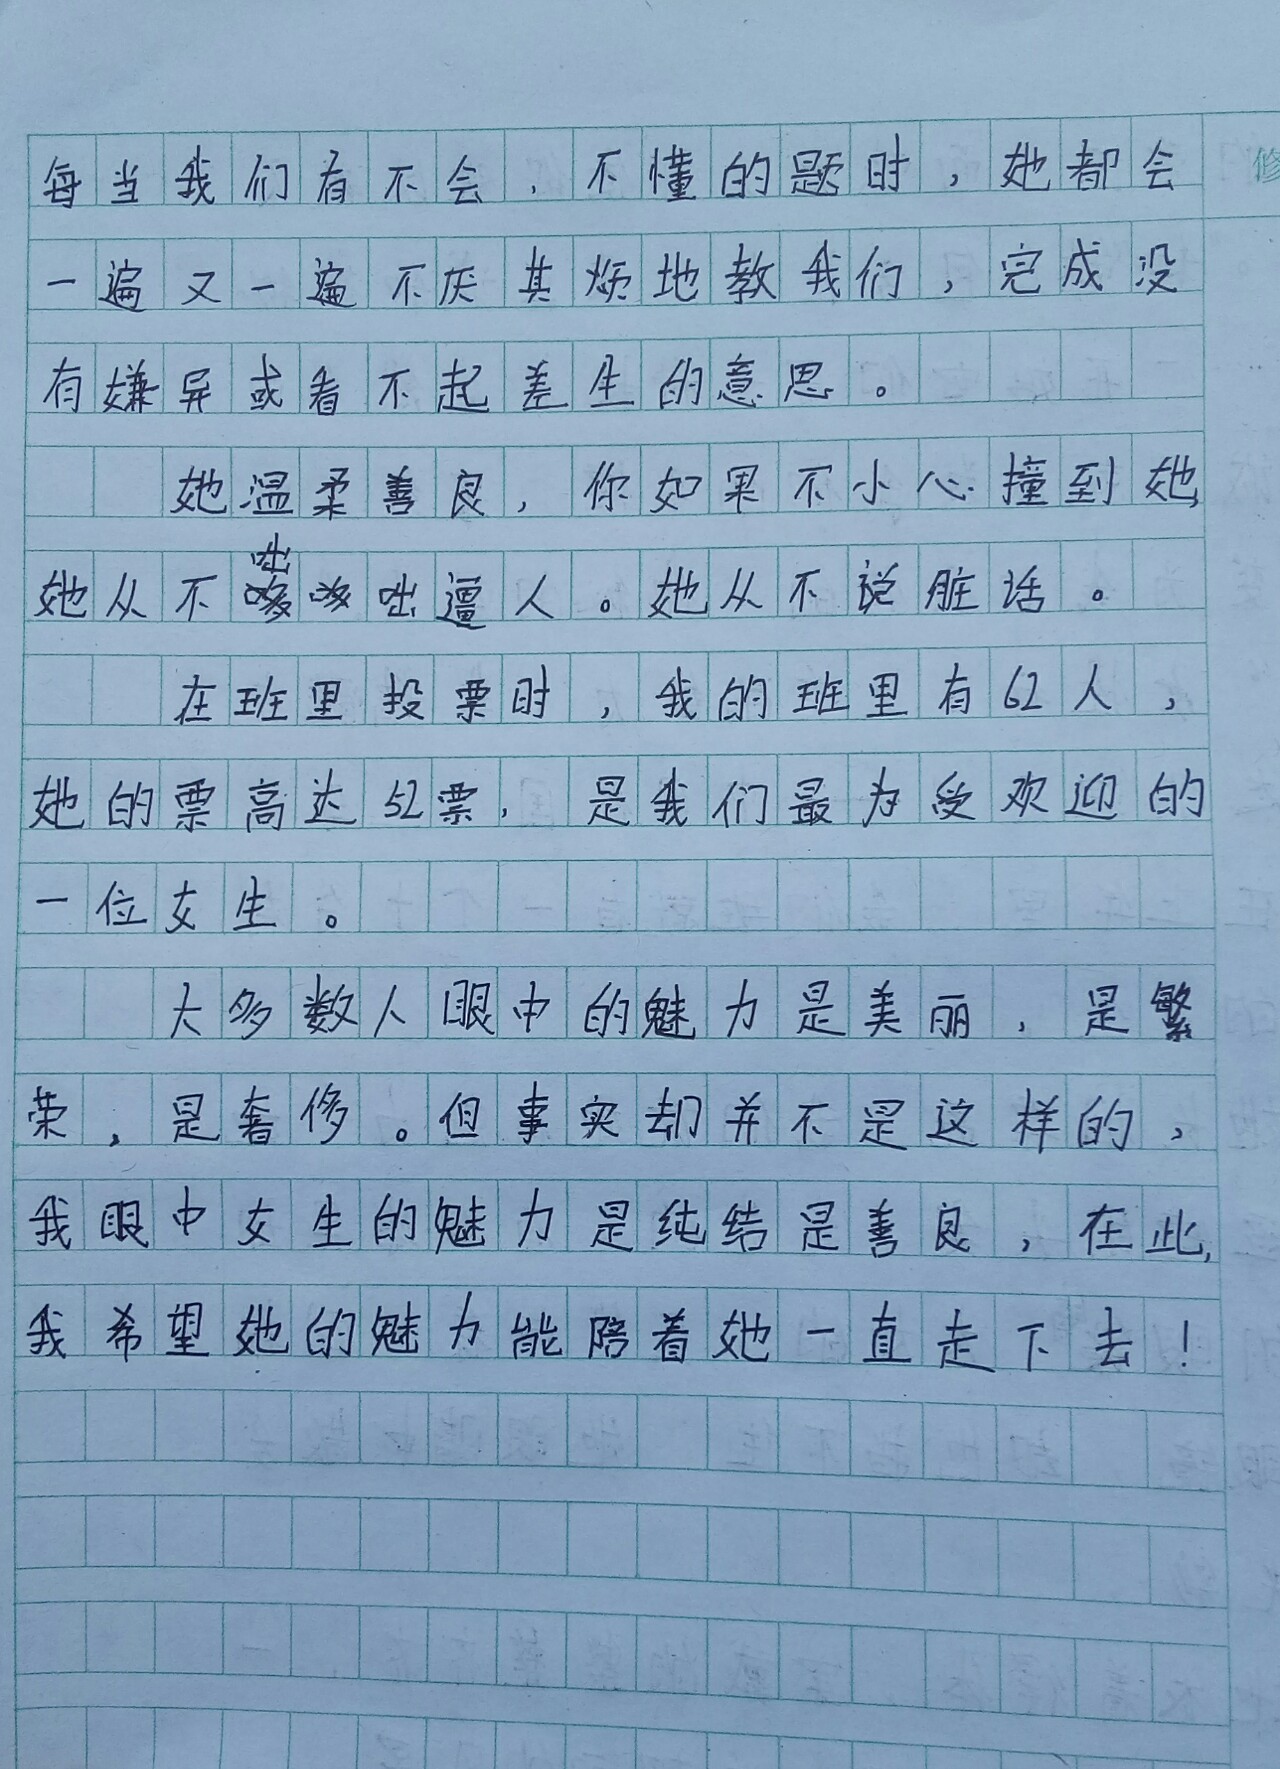 每当我们有不会，不懂的题时，她都会
修
一遍又一遍不厌其烦地教我们，完成没
有嫌异或看不起差生的意思。
她温柔善良，你如果不小心撞到她，
咄
她从不哆哆咄逼人。她从不说脏话。
在班里投票时，我的班里有62人，
她的票高达52票，是我们最为受欢迎的
一位女生。
大多数人眼中的魅力是美丽，是繁
荣，是奢侈。但事实却并不是这样的，
我眼中女生的魅力是纯结是善良，在此，
我希望她的魅力能陪着她一直走下去！